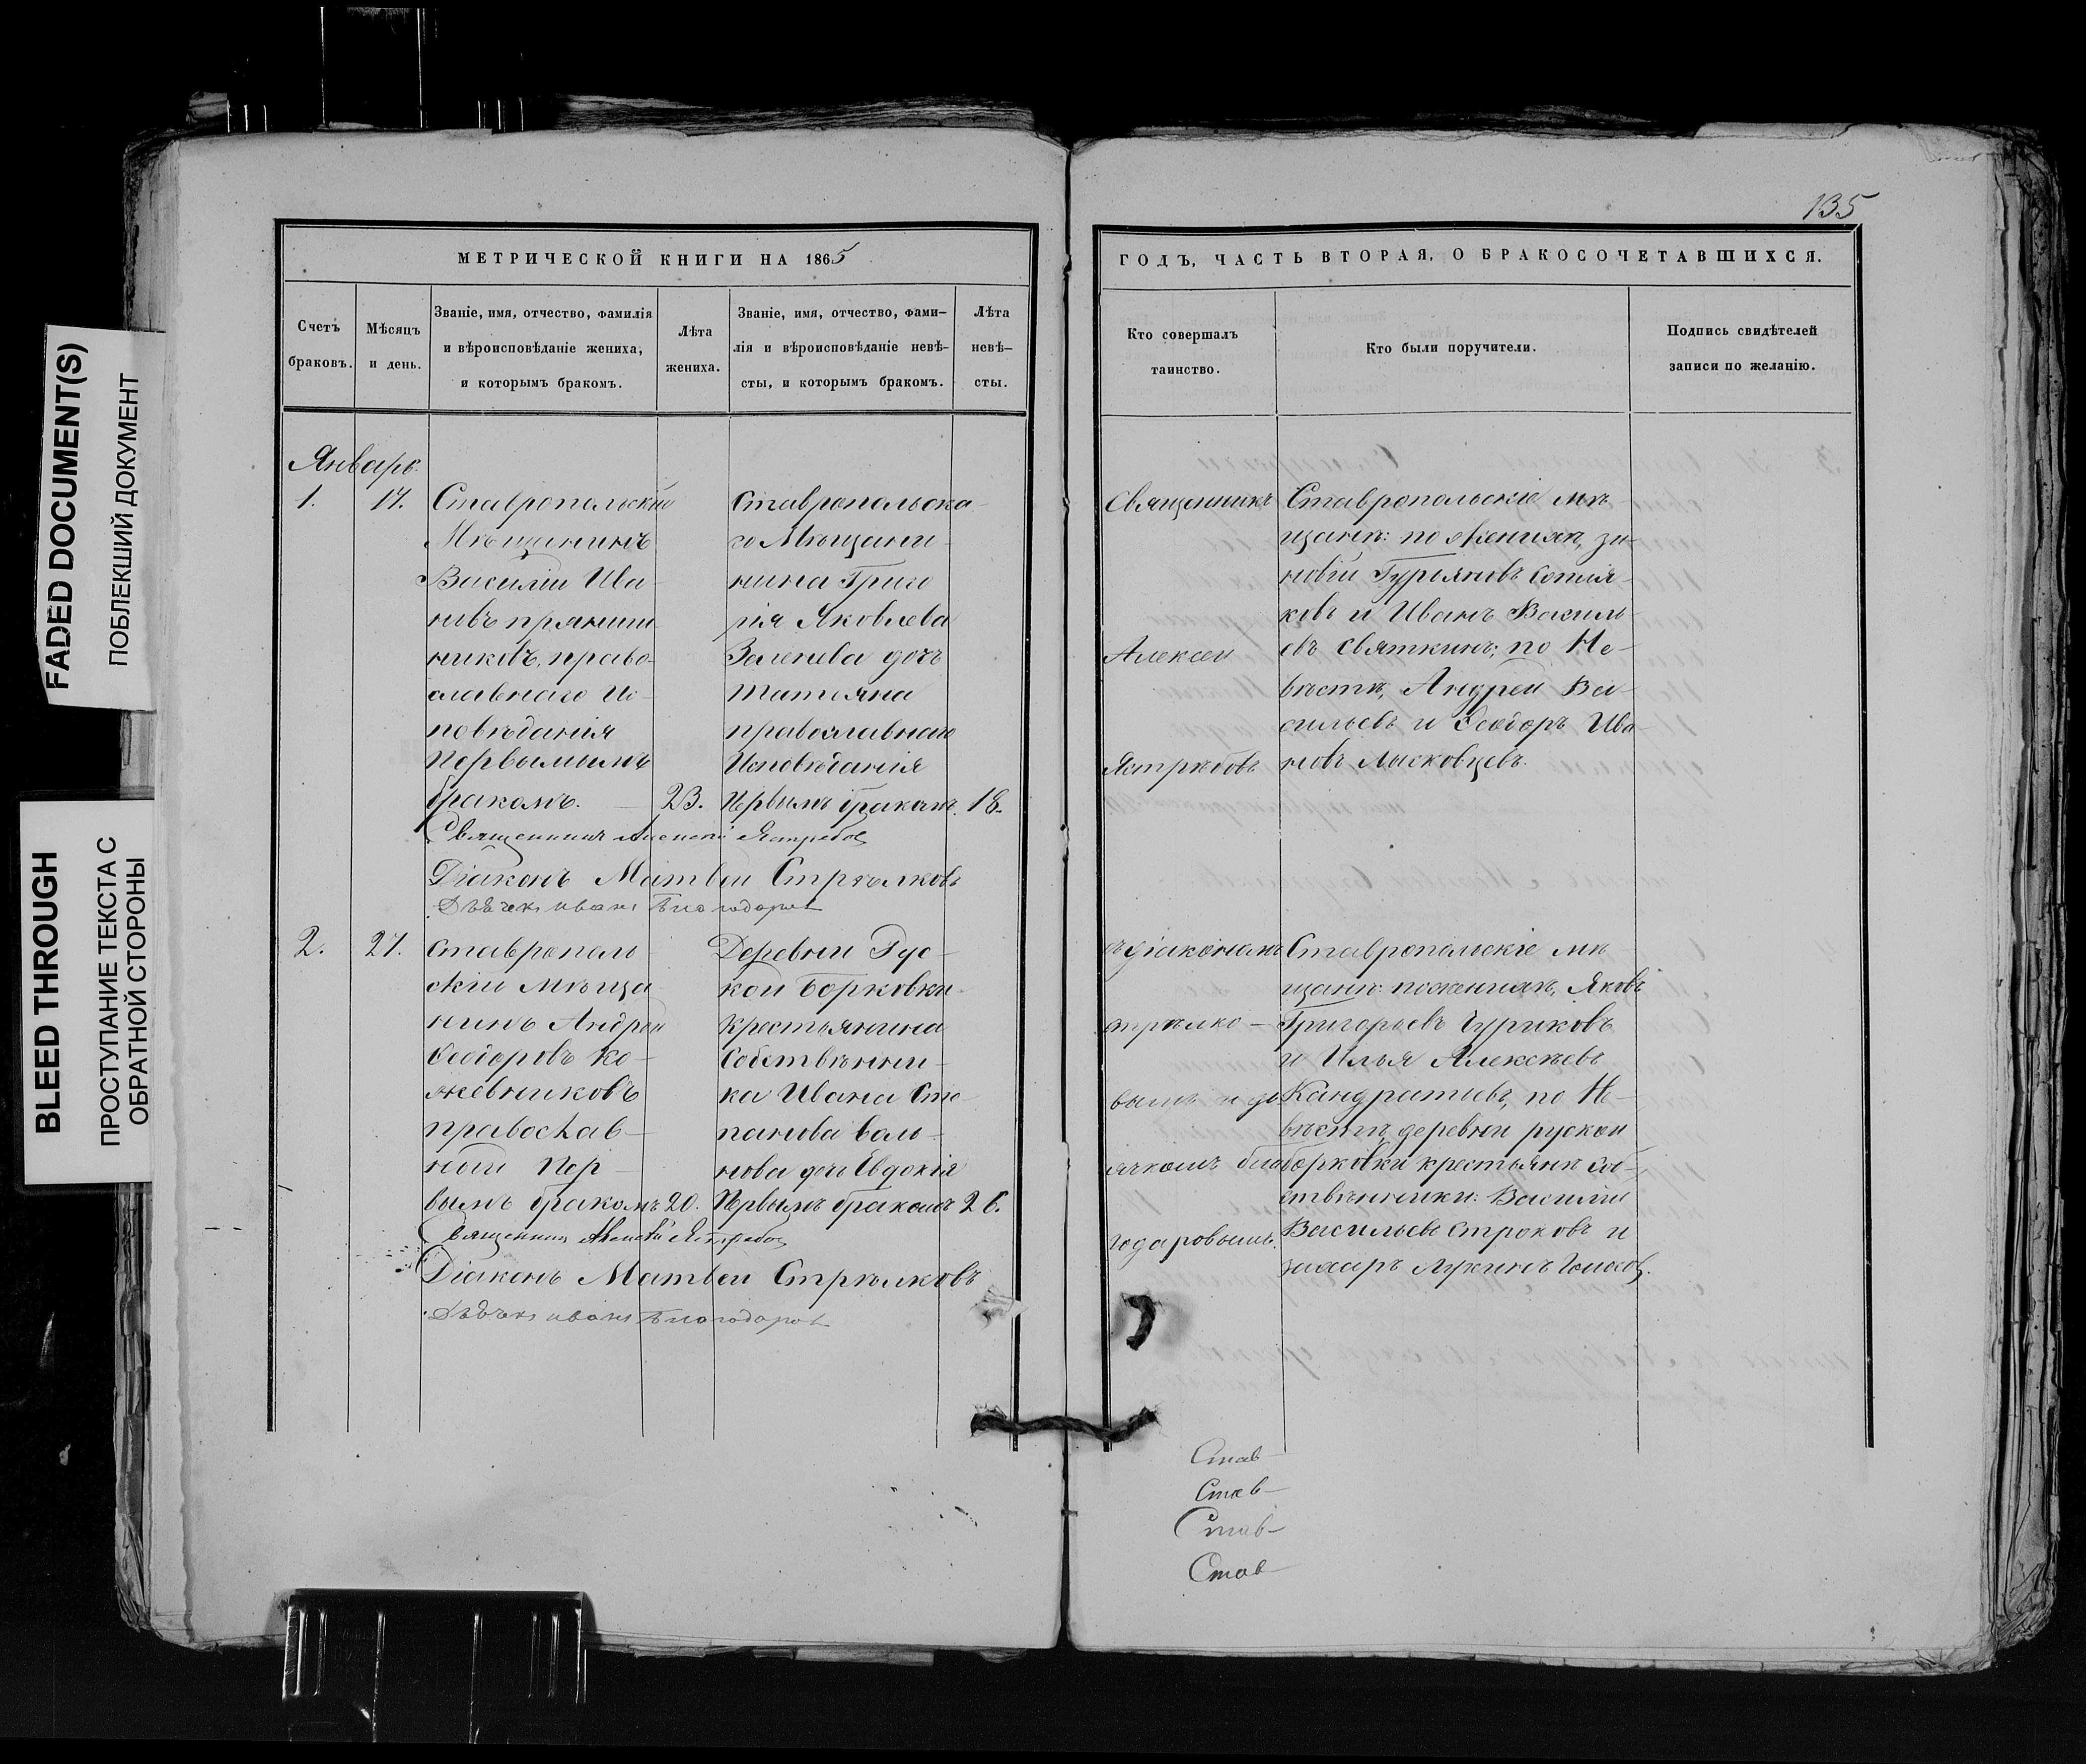 135
МЕТРИЧЕСКОЙ КНИГИ НА 1865
ГОДЪ, ЧАСТЬ ВТОРАЯ, О БРАКОСОЧЕТАВШИХСЯ.
Счетъ
браковъ.
Мѣсяцъ
и день.
Званіе, имя, отчество, фамилія
и вѣроисповѣданіе жениха,
и которымъ бракомъ.
Лѣта
жениха.
Званіе, имя, отчество, фами-
лія и вѣроисповѣданіе невѣ-
сты, и которымъ бракомъ.
Лѣта
невѣ-
сты.
Кто совершалъ
таинство.
Кто были поручители.
Подпись свидѣтелей
записи по желанію.
Январь.
1.
17.
Ставропольскій
Мѣщанинъ
Василій Ива-
новъ прянишн-
никовъ, право-
славнаго Ис-
повѣданія
Первымымъ
бракомъ.
23.
Ставропольска-
го Мѣщани-
нина Григо
рія Яковлева
Зеленева дочь
Татьяна
православнаго
Исповѣданія
Первымъ бракомъ.
18.
Священникъ
Алексей
Ястребовъ
Ставропольскіе мѣ-
щани: по женихѣ, зи-
новій Гурьяновъ Сотня-
ковъ и Иванъ Василь-
евъ Святкинъ; по Не-
вѣстѣ, Андрей Ва-
сильевъ и Ѳеодоръ Ива-
новъ Лысковцевъ.
Священникъ Алексей Ястребовъ
Діаконъ Матвеи Стрѣлковъ
Дьячекъ иванъ Благодаровъ
2.
27.
Ставрополь-
скій мѣща-
нинъ Андрей
Ѳеодоровъ Ко-
жевниковъ
православ-
ной Пер-
вымъ бракомъ
20.
Деревни Рус-
кой Борковки
Крестьянина
Собственни-
ка Ивана Сте-
панова
нова дочь Евдокія
Первымъ бракомъ
26.
съ діакономъ
стрѣлко-
вымъ и дь-
ячкомъ бла-
годаровымъ.
Ставропольскіе мѣ-
щани: по женихѣ, Яковъ
Григорьевъ Чуриковъ
и Илья Алексѣевъ
Кандратьевъ, по Не-
вѣстѣ, деревни руской
борковки крестьяни соб-
ственники: Василій
Васильевъ Строковъ и
захаръ Лукинъ
Священникъ Алексей Ястребовъ
Діаконъ Матвеи Стрѣлковъ
Дьячекъ иванъ Благодаровъ
Став-
Став-
Став-
Став-
FADED DOCUMENT(S)
ПОБЛЕКШИЙ ДОКУМЕНТ
BLEED THROUGH
ПРОСТУПАНИЕ ТЕКСТА С
ОБРАТНОЙ СТОРОНЫ